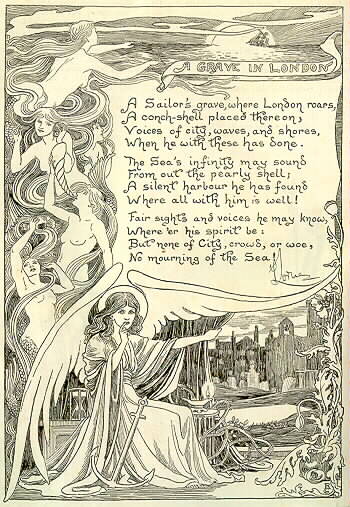 A GRAVE IN LONDON
A Sailor's grave, where London roars,
A conch-shell placed thereon;
Voices of city, waves, and shores,
When he with these has done.
The Sea's infinity may sound
From out the pearly shell;
A silent harbour he has found
Where all with him is well!
Fair sights and voices he may know,
Where'er his spirit be:
But none of City, crowd, or woe,
No mourning of the Sea!